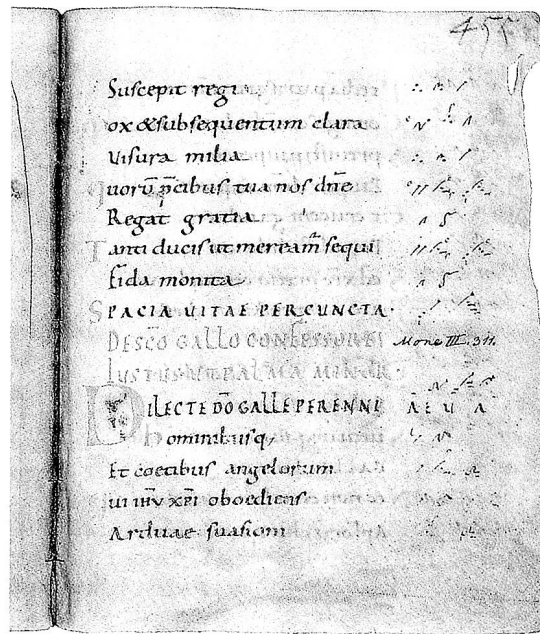 455
Suscepit regia
ox & subsequentum clara
Visura milia
uorū p̄cibus tua nos dn̄e
Regat gratia
Tanti ducis ut meream̄ sequi
Fida monita
SPACIA VITAE PER CUNCTA.
DE SCŌ GALLO CONFESSORE Mone III, 311.
IUSTUS UT PALMA MINOR.
DILECTE DŌ GALLE PERENNI A E U A
Hominibusq;
Et coetibus angelorum
ui ihu xpi oboediens
Arduae suasioni